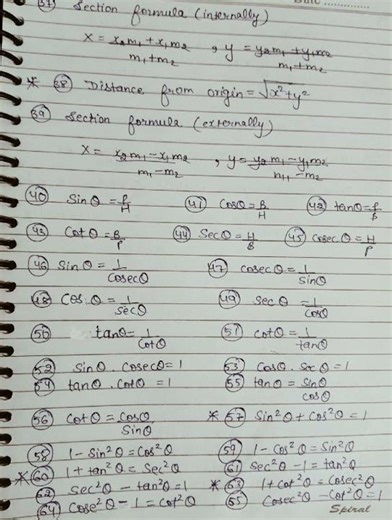 37) Section formula (internally)
x = x₂m₁ + x₁m₂ / m₁+m₂ , y = y₂m₁ + y₁m₂ / m₁+m₂
* 38 Distance from origin = √x²+y²
39 Section formula (externally)
x = x₂m₁ − x₁m₂ / m₁ − m₂ , y = y₂m₁ − y₁m₂ / m₁ − m₂
40 Sinθ = P/H 41 Cosθ = B/H 42 tanθ = P/B
43 Cotθ = B/P 44 Secθ = H/B 45 cosecθ = H/P
46 Sinθ = 1/cosecθ 47 cosecθ = 1/sinθ
48 Cosθ = 1/secθ 49 Secθ = 1/cosθ
50 tanθ = 1/cotθ 51 Cotθ = 1/tanθ
52 Sinθ . Cosecθ = 1 53 Cosθ . Secθ = 1
54 tanθ . Cotθ = 1 55 tanθ = Sinθ/cosθ
56 Cotθ = Cosθ/Sinθ * 57 Sin²θ + Cos²θ = 1
58 1 − Sin²θ = Cos²θ 59 1 − Cos²θ = Sin²θ
* 60 1 + tan²θ = Sec²θ 61 Sec²θ − 1 = tan²θ
62 Sec²θ − tan²θ = 1 * 63 1 + Cot²θ = Cosec²θ
64 Cosec²θ − 1 = Cot²θ 65 Cosec²θ − Cot²θ = 1
Spiral